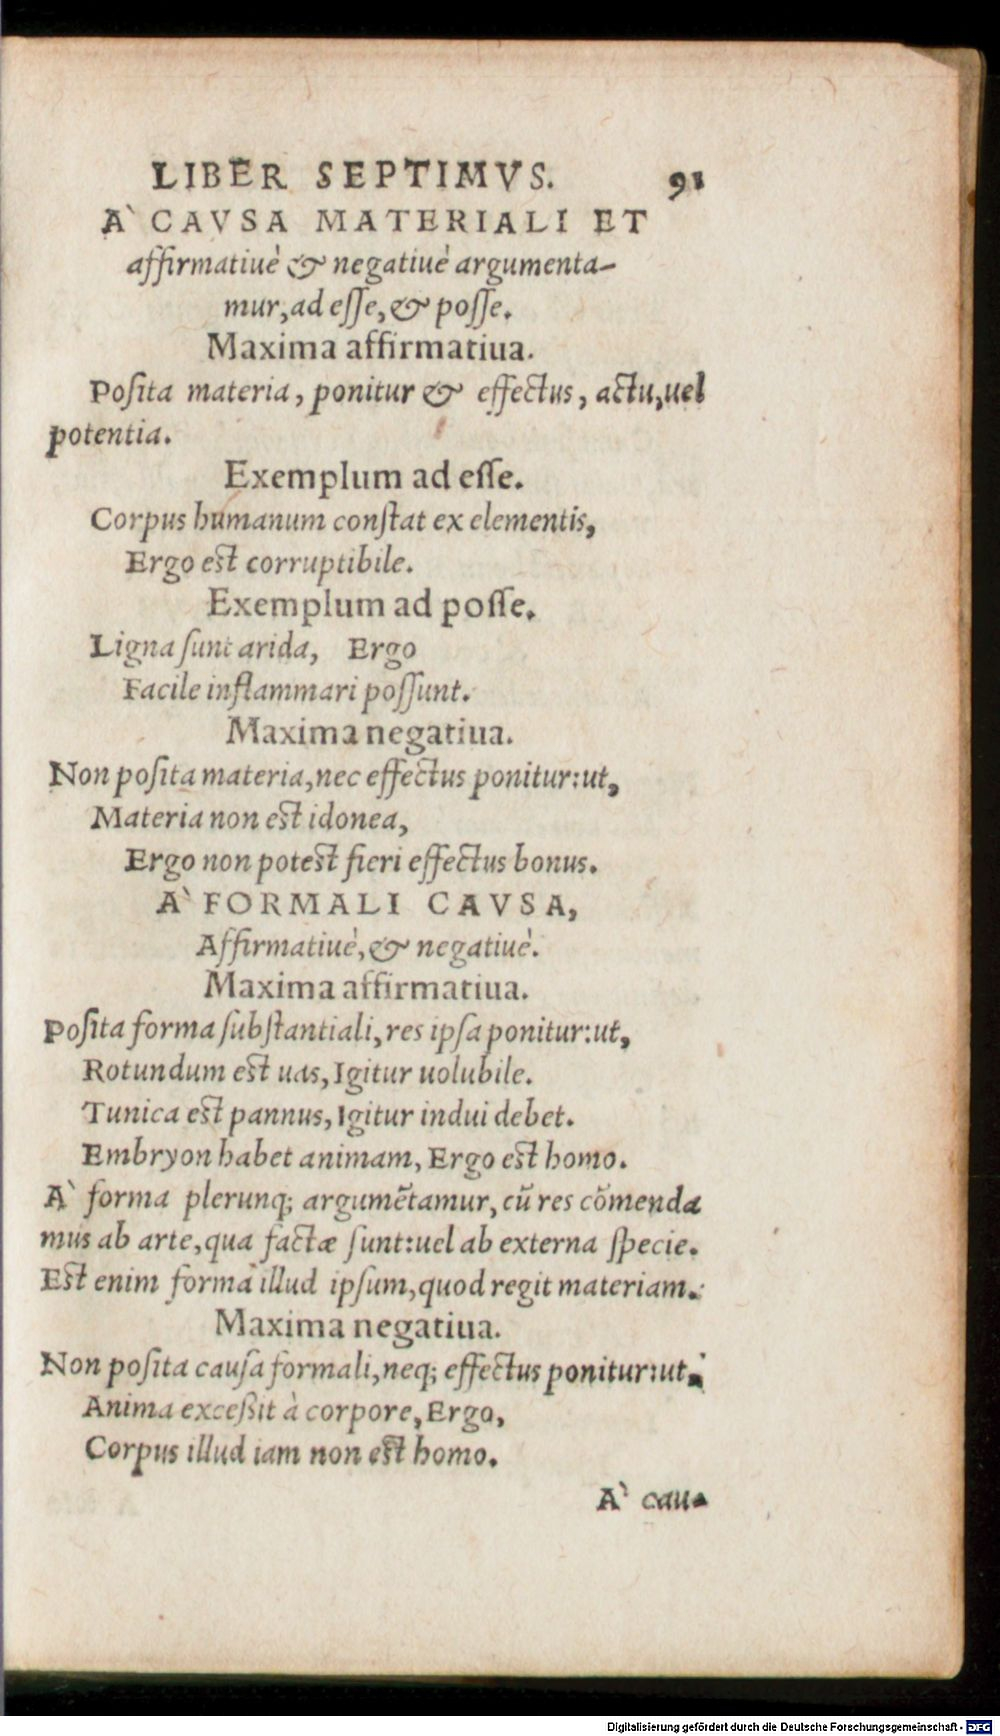 LIBER SEPTIMVS. 91
A` CAVSA MATERIALI ET
affirmatiuè & negatiuè argumenta-
mur, ad eſſe, & poſſe.
Maxima affirmatiua.
Poſita materia, ponitur & effectus, actu, uel
potentia.
Exemplum ad eſſe.
Corpus humanum conſtat ex elementis,
Ergo eſt corruptibile.
Exemplum ad poſſe.
Ligna ſunt arida, Ergo
Facile inflammari poſſunt.
Maxima negatiua.
Non poſita materia, nec effectus ponitur: ut,
Materia non eſt idonea,
Ergo non poteſt fieri effectus bonus.
A` FORMALI CAVSA,
Affirmatiuè, & negatiuè.
Maxima affirmatiua.
Poſita forma ſubſtantiali, res ipſa ponitur: ut,
Rotundum eſt uas, Igitur uolubile.
Tunica eſt pannus, Igitur indui debet.
Embryon habet animam, Ergo eſt homo.
A` forma plerunq; argumẽtamur, cũ res cõmenda
mus ab arte, qua factæ ſunt: uel ab externa ſpecie.
Eſt enim forma illud ipſum, quod regit materiam.
Maxima negatiua.
Non poſita cauſa formali, neq; effectus ponitur: ut,
Anima exceßit à corpore, Ergo,
Corpus illud iam non eſt homo.
A` cau-
Digitalisierung gefördert durch die Deutsche Forschungsgemeinschaft - DFG